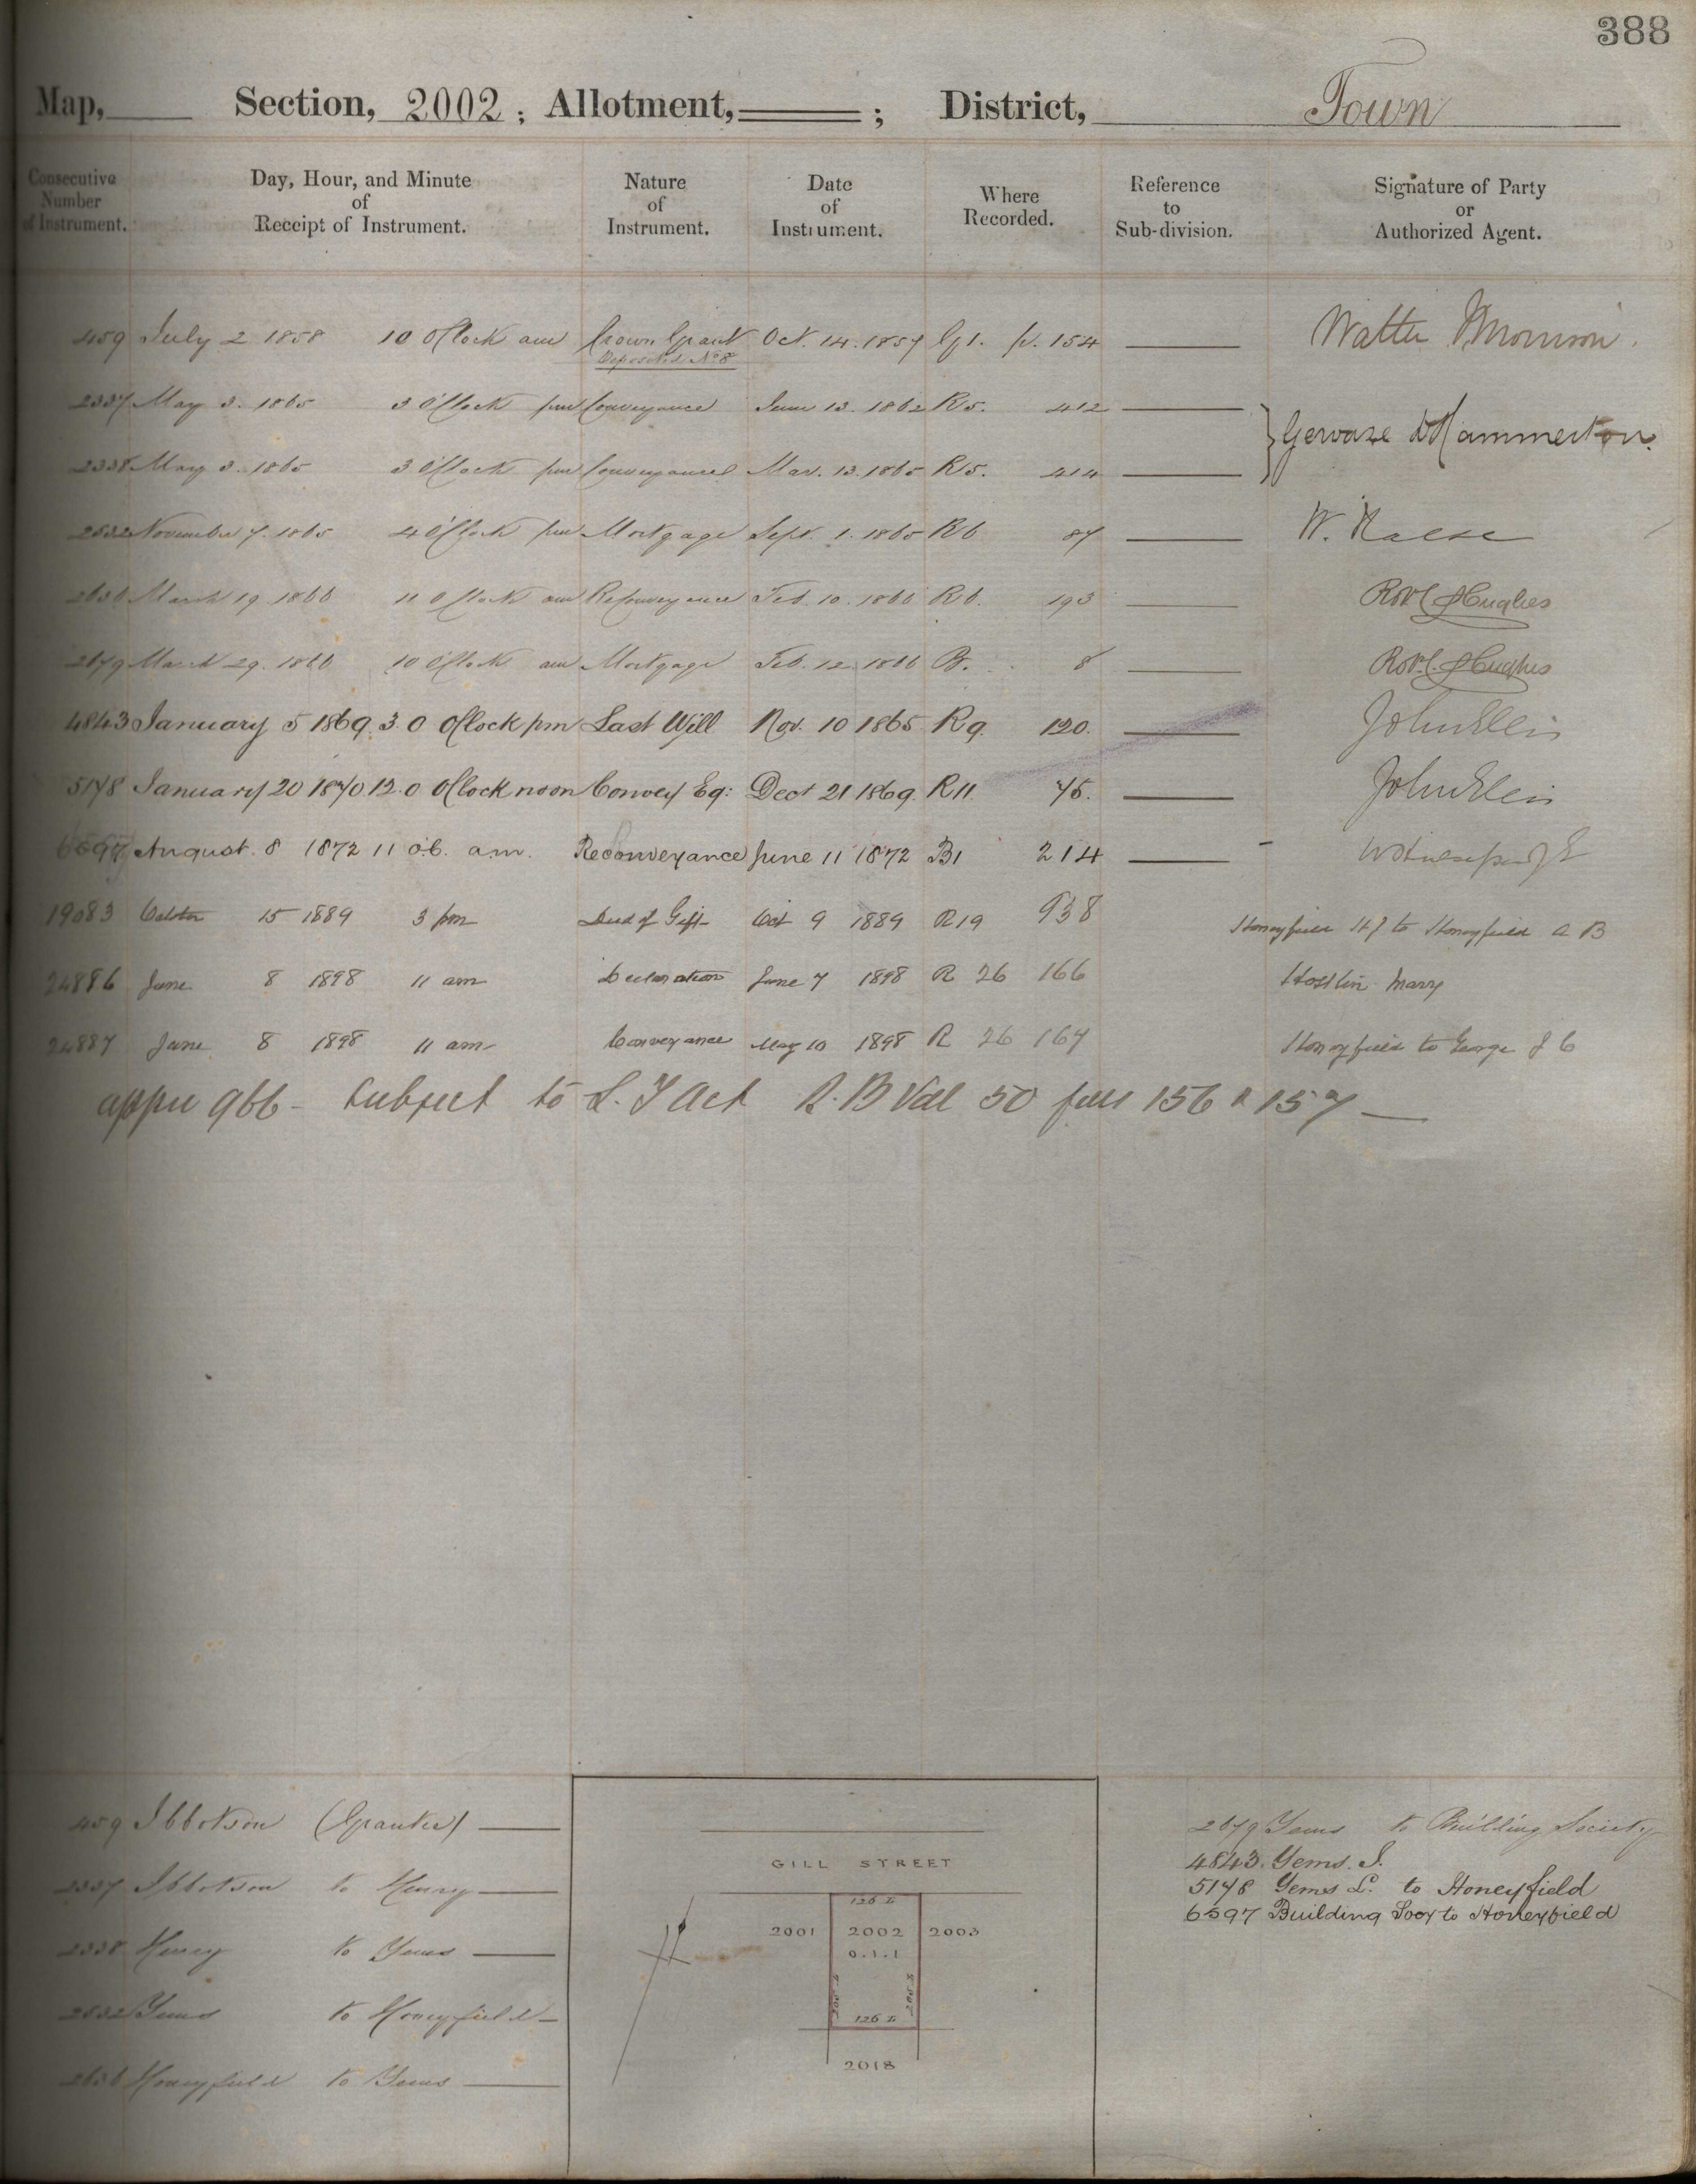 388
Map, Section, 2002; Allotment, ; District, Town
Consecutive Number of Instrument.
Day, Hour, and Minute of Receipt of Instrument.
Nature of Instrument.
Date of Instrument.
Where Recorded.
Reference to Sub-division.
Signature of Party or Authorized Agent.
459 July 2 1858 10 OClock am Crown Grant Oct. 14. 1857 G1. p. 154 Walter Morrison.
Deposited No 8
2337 May 3. 1865 3 O'Clock pm Conveyance June 13. 1862 R5. 412
Gervase D Hammerton.
2338 May 3. 1865 3 O'Clock pm Conveyance Mar. 13. 1865 R5. 414
2532 November 7. 1865 4 O'Clock pm Mortgage Sept. 1. 1865 R6 87 W. Halse
2636 March 19. 1866 11 OClock am Reconveyance Feb. 10. 1866 R6. 193 Robt. Hughes
2679 March 29. 1866 10 O'Clock am Mortgage Feb. 12 1866 B. 8 Robt. Hughes
4843 January 5 1869. 3.0 OClock pm Last Will Nov. 10 1865 R9. 120.
5178 January 20 1870 12.0 OClock noon Convey Eq: Dect 21 1869. R11. 75.
6597 August. 8 1872 11 o.c. a.m. Reconveyance June 11 1872 B1 214
19083 October 15 1889 3 pm Deed of Gift Oct 9 1889 R19 938 Honeyfield H J to Honeyfield A B
24886 June 8 1898 11 am Declaration June 7 1898 R 26 166 Mary
24887 June 8 1898 11 am Conveyance May 10 1898 R 26 167 Honeyfield to George J C
appn 966 - Subject to L. T Act R. B Vol 50 fols 156 & 157
459 Ibbotson (Grantee)
2337 Ibbotson to Henry
2338 Henry to Yems
2532 Yems to Honeyfield
2636 Honeyfield to Yems
GILL STREET
126 L
2001 2002 2003
0.1.1
205 L 205 L
126 L
2018
2679 Yems to Building Society
4843. Yems. J.
5178 Yems L. to Honeyfield
6597 Building Socy to Honeyfield